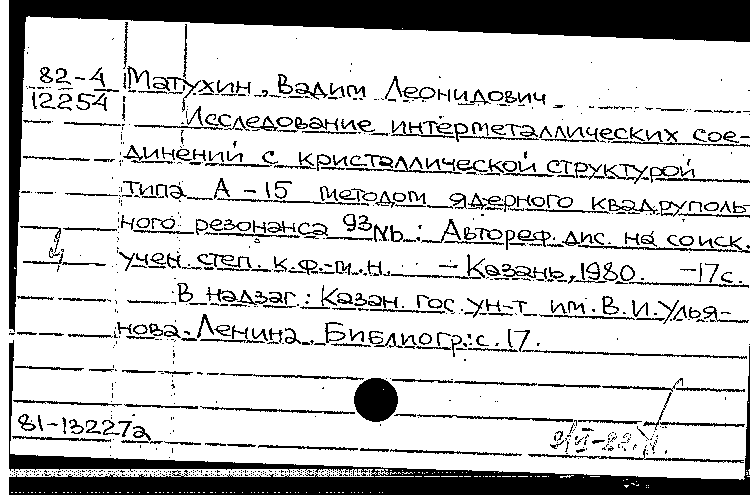 82-4 Матухин, Вадим Леонидович.
12254
Исследование интерметаллических сое-
динений с кристаллической структурой
типа А-15 методом ядерного квадруполь-
ного резонанса ⁹³Nb: Автореф. дис. на соиск.
учен. степ. к.ф.-м.н. - Казань, 1980. -17с.
В надзаг.: Казан. гос. ун-т им. В.И.Улья-
нова-Ленина. Библиогр.: с. 17.
81-13227а